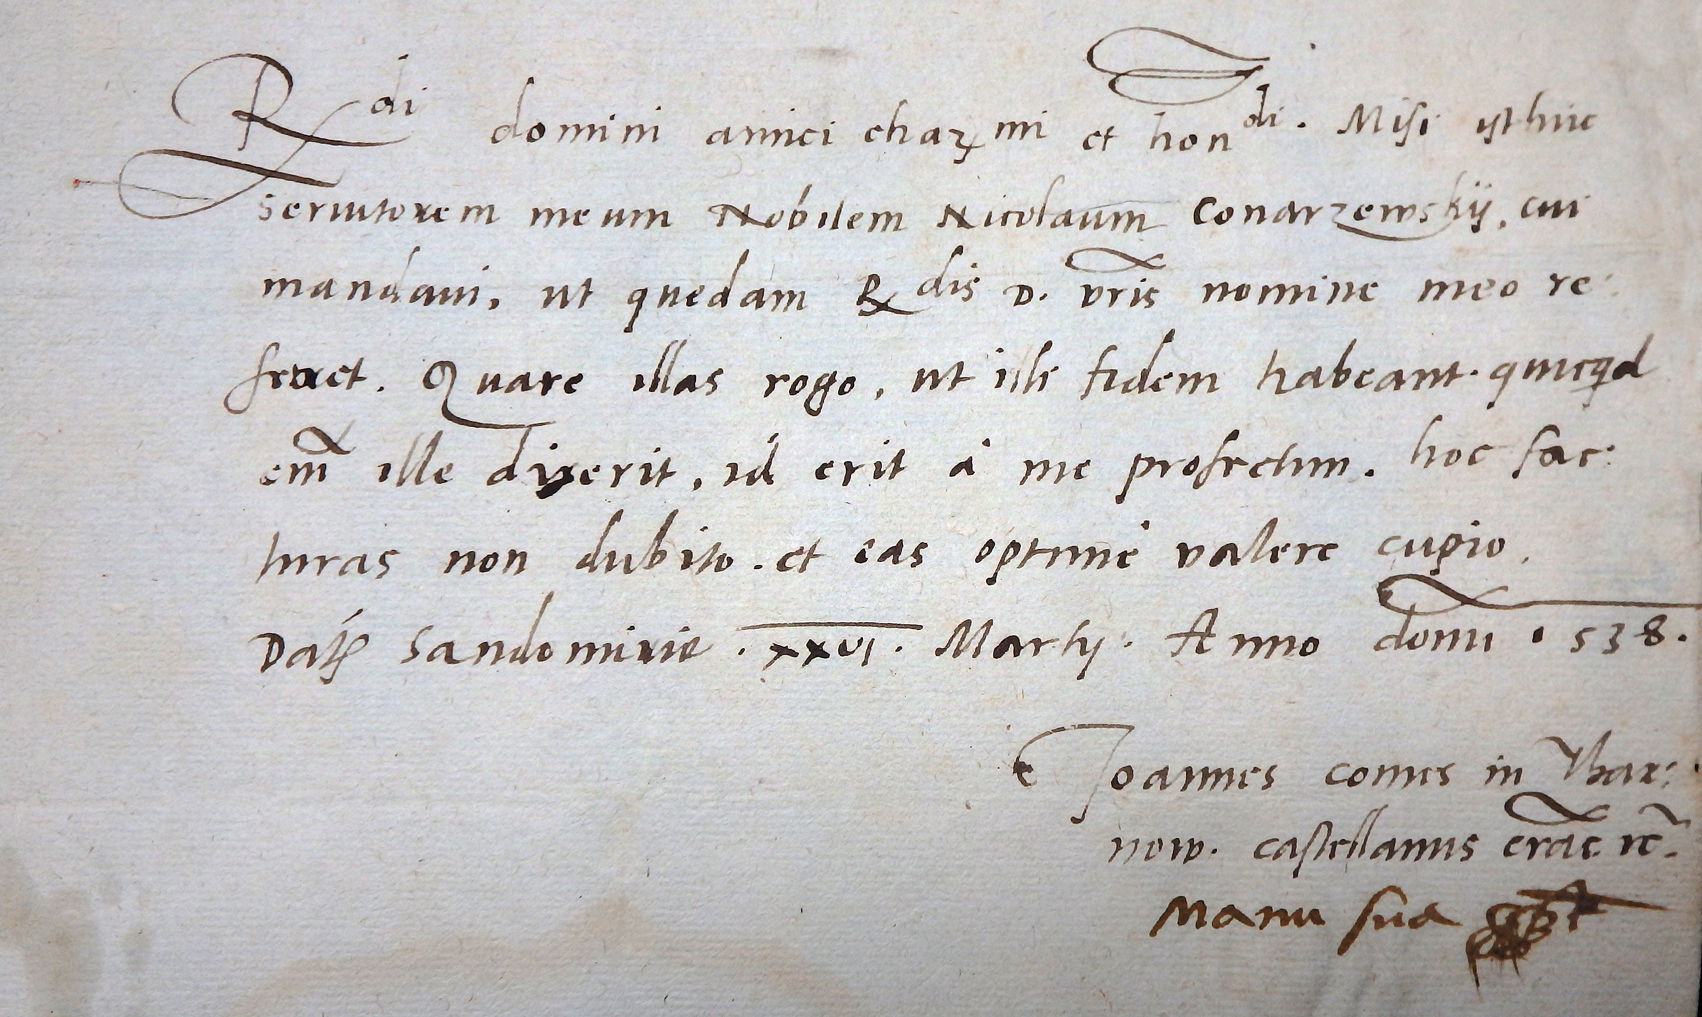 R^di domini amici chariss^mi et hon^di. Misi isthuc
servitorem meum Nobilem Nicolaum Conarzewskij, cui
mandavi, ut quedam R^dis D. vris nomine meo re:
ferret. Quare illas rogo, ut illi fidem habeant. quicqd
em ille dixerit, id erit à me profectum. hoc fac:
turas non dubito. et eas optimè valere cupio.
Dat Sandomirie . XXVI . Martij. Anno domi . 538.
Joannes comes in Thar:
now. castellanus crac. rc.
Manu sua sspt